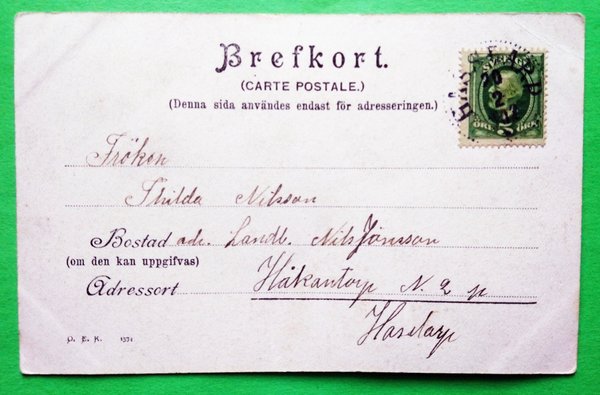 Brefkort.
(CARTE POSTALE.)
(Denna sida användes endast för adresseringen.)
SVERIGE
20
2
5
ÖRE ÖRE
Fröken
Thilda Nilsson
Bostad adr. Landb. Nils Jönsson
(om den kan uppgifvas)
Adressort Håkantorp N. 2 p
Hasslarp
D. E. K. 1334